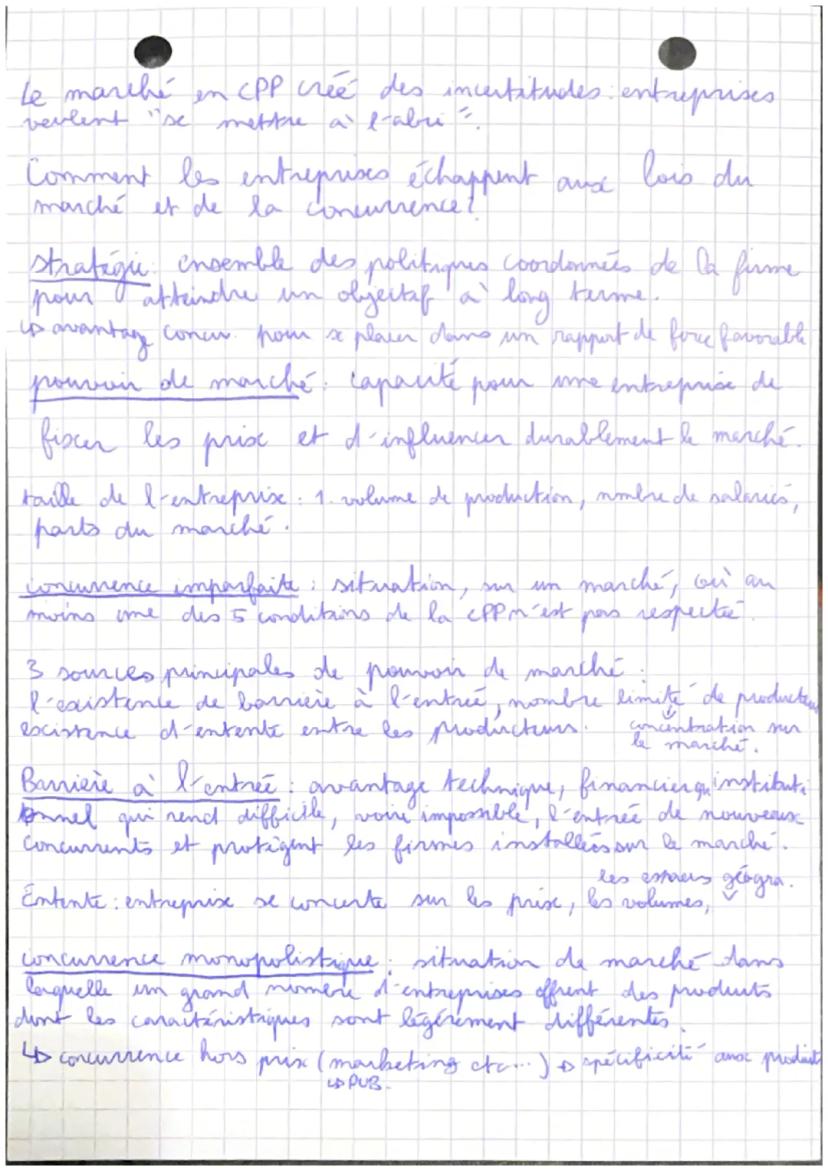 Le marché en CPP créé des incertitudes : entreprises
veulent "se mettre à l'abri".
Comment les entreprises échappent aux lois du
marché et de la concurrence?
stratégie : ensemble des politiques coordonnées de la firme
pour atteindre un objectif à long terme.
↳ avantag concur. pour se placer dans un rapport de force favorable
pouvoir de marché : capacité pour une entreprise de
fixer les prix et d'influencer durablement le marché.
taille de l'entreprise : 1. volume de production, nombre de salariés,
parts du marché.
concurrence imparfaite : situation, sur un marché, où au
moins une des 5 conditions de la CPP n'est pas respectée.
3 sources principales de pouvoir de marché :
l'existence de barrière à l'entrée, nombre limité de producteurs
existence d'entente entre les producteurs. concentration sur
le marché.
Barrière à l'entrée : avantage technique, financier institut
onnel qui rend difficile, voire impossible, l'entrée de nouveaux
concurrents et protègent les firmes installées sur le marché.
les espaces géogra.
Entente : entreprise se concerte sur les prix, les volumes,
concurrence monopolistique : situation de marché dans
laquelle un grand nombre d'entreprises offrent des produits
dont les caractéristiques sont légèrement différentes.
↳ concurrence hors prix (marketing etc...) ↳ spécificité aux produits
↳ PUB.